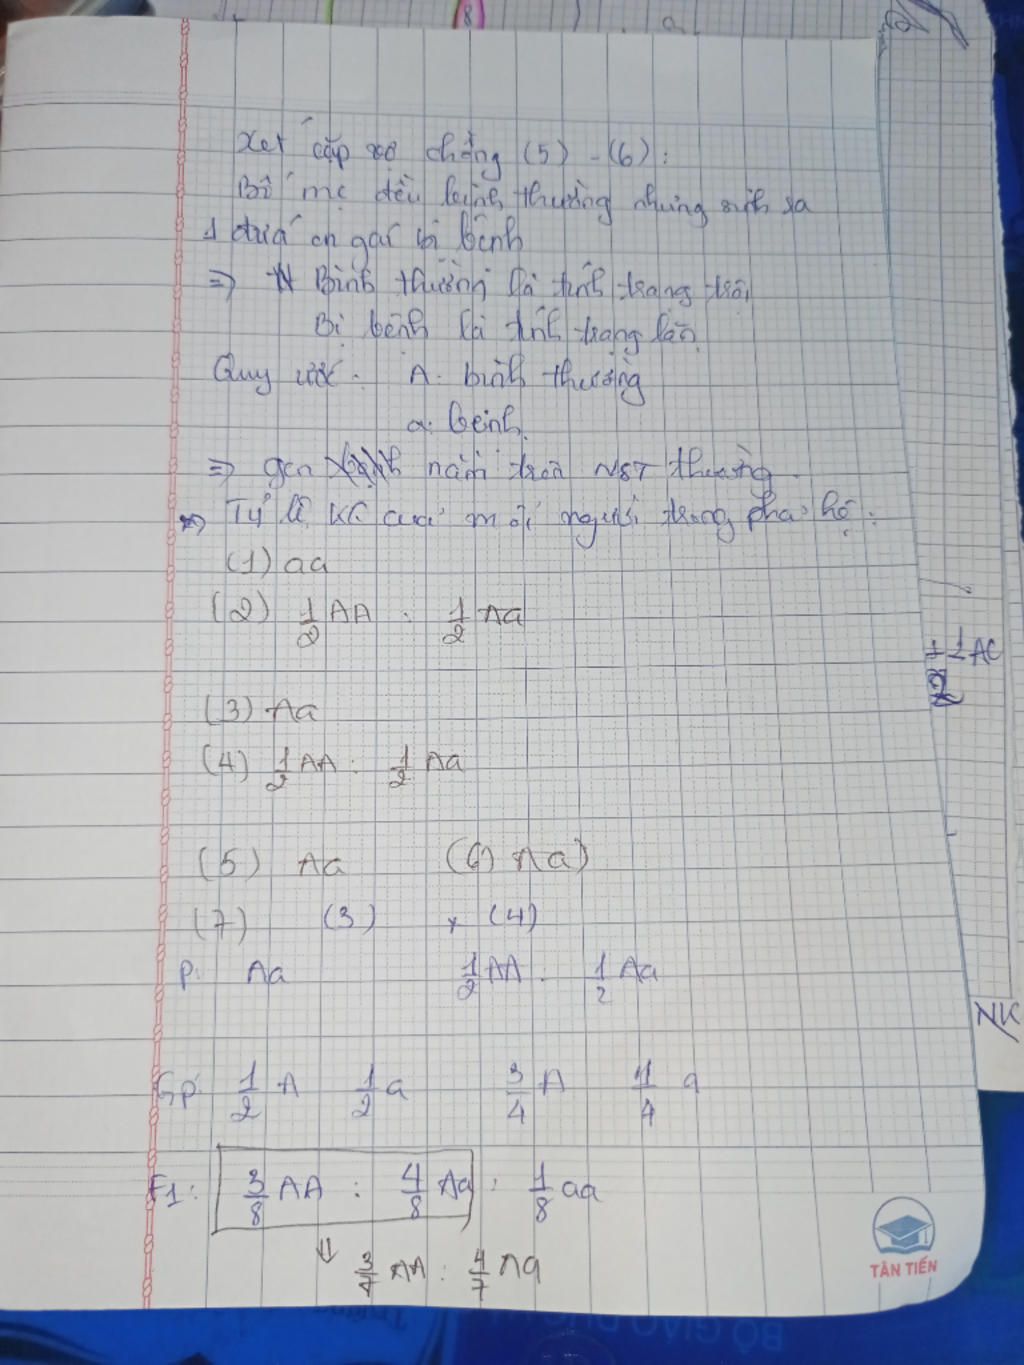 Xét cặp vợ chồng (5) - (6):
Bố mẹ đều bình thường nhưng sinh ra
1 đứa con gái bị bệnh
=> Bình thường là tính trạng trội
Bị bệnh là tính trạng lặn
Quy ước: A: bình thường
a: bệnh.
=> gen nằm trên NST thường.
=> Tỷ lệ KG của mỗi người trong phả hệ:
(1) aa
(2) 1/2 AA : 1/2 Aa
(3) Aa
(4) 1/2 AA : 1/2 Aa
(5) Aa (6) Aa)
(7) (3) x (4)
P: Aa 1/2 AA : 1/2 Aa
Gp: 1/2 A 1/2 a 3/4 A 1/4 a
F1: 3/8 AA : 4/8 Aa : 1/8 aa
⇓ 3/7 AA : 4/7 Aa
TÂN TIẾN
+ 1/2 Aa
NK
BỘ GIÁO DỤC
8
a